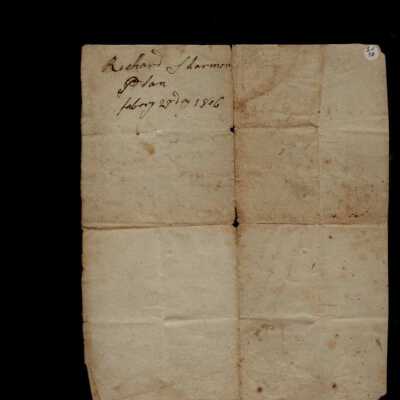 Richard Sharmon
Plan
febry 28 dy 1806